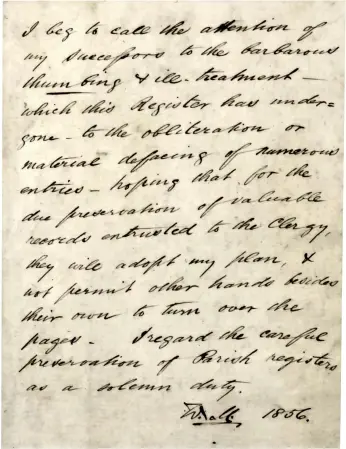 I beg to call the attention of
my successors to the barbarous
thumbing & ill-treatment -
which this Register has under=
gone - to the obliteration or
material defacing of numerous
entries - hoping that for the
due preservation of valuable
records entrusted to the Clergy,
they will adopt my plan, &
not permit other hands besides
their own to turn over the
pages - I regard the careful
preservation of Parish registers
as a solemn duty.
1856.